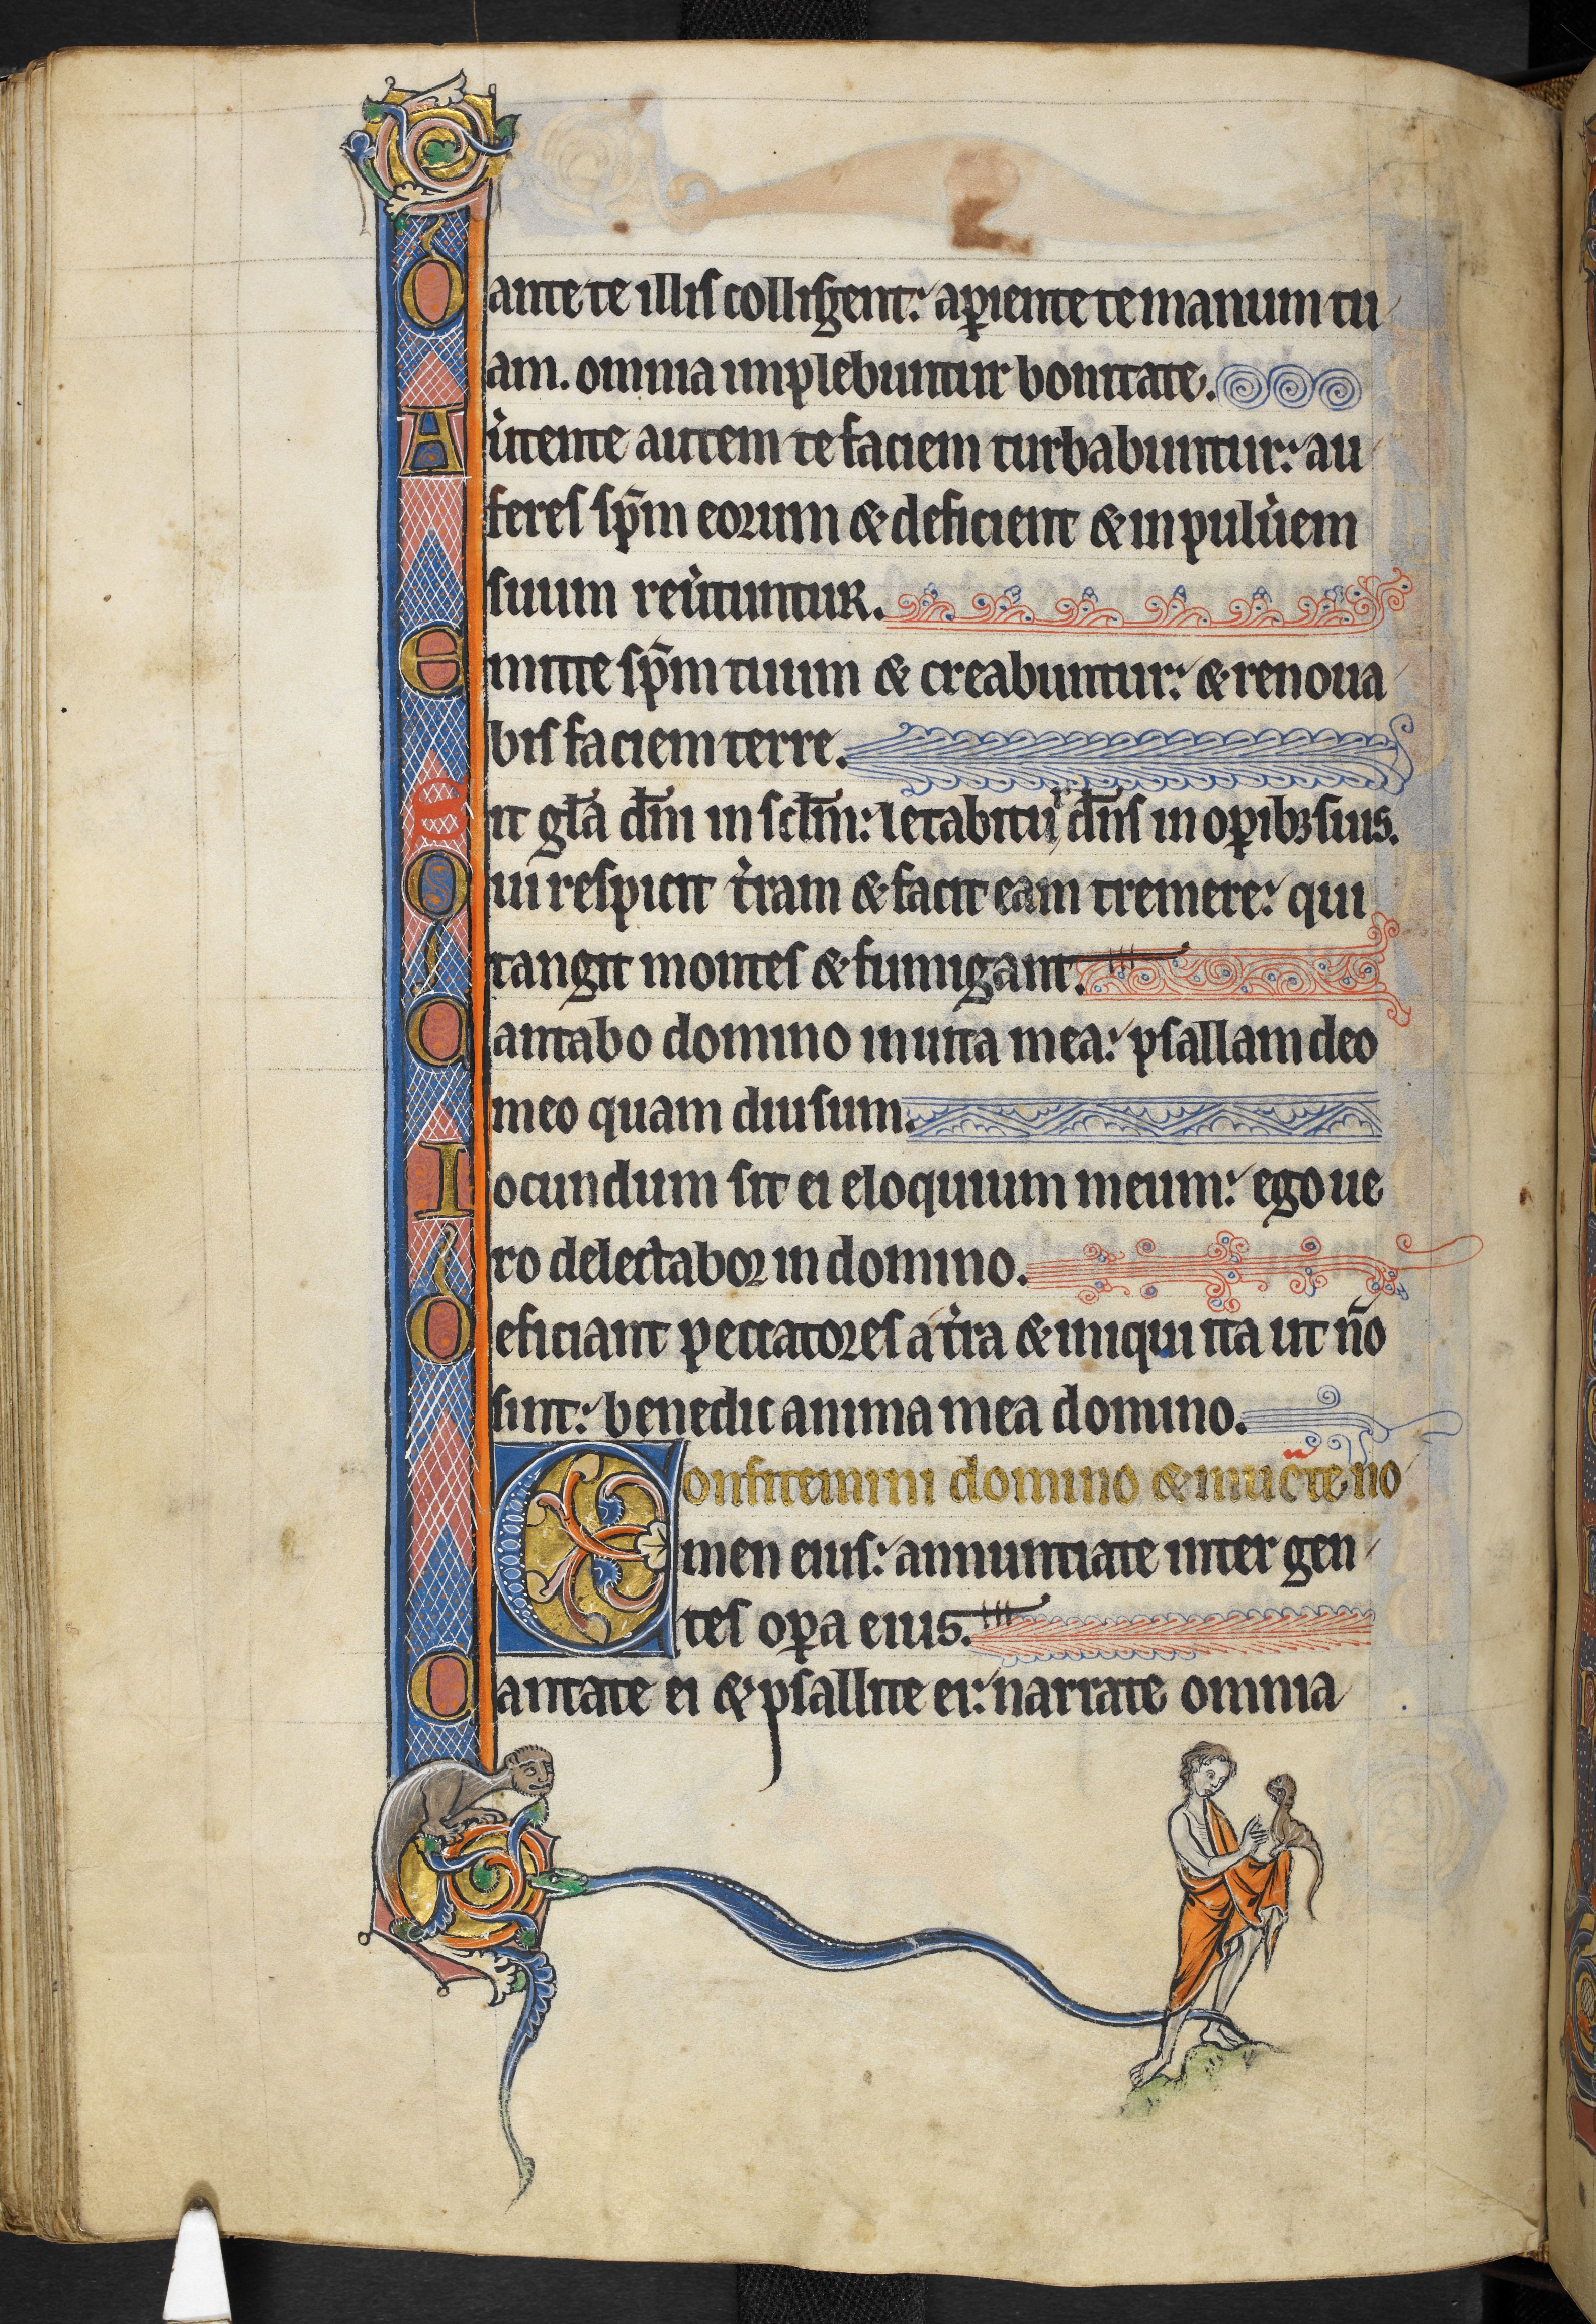 Dante te illis colligent: aꝑiente te manum tu
am. omnia implebuntur bonitate.
Au̾tente autem te faciem turbabuntur: au
feres sp̄m eorum & deficient & in pulu̾em
suum reu̾tuntur.
Emitte sp̄m tuum & creabuntur: & renoua
bis faciem terre.
Sit gl̄a dn̄i in sc̄lm̄: letabitur dn̄s in oꝑibꝫ suis.
Qui respicit t̾ram & facit eam tremere: qui
tangit montes & fumigant.
Cantabo domino in uita mea: psallam deo
meo quam diu sum.
Iocundum sit ei eloquium meum: ego ue
ro delectabor in domino.
Deficiant peccatores a t̾ra & iniqui ita ut n̄o
sint: benedic anima mea domino.
Confitemini domino & inuoc̄te no
men eius: annuntiate inter gen
tes oꝑa eius.
Cantate ei & psallite ei: narrate omnia